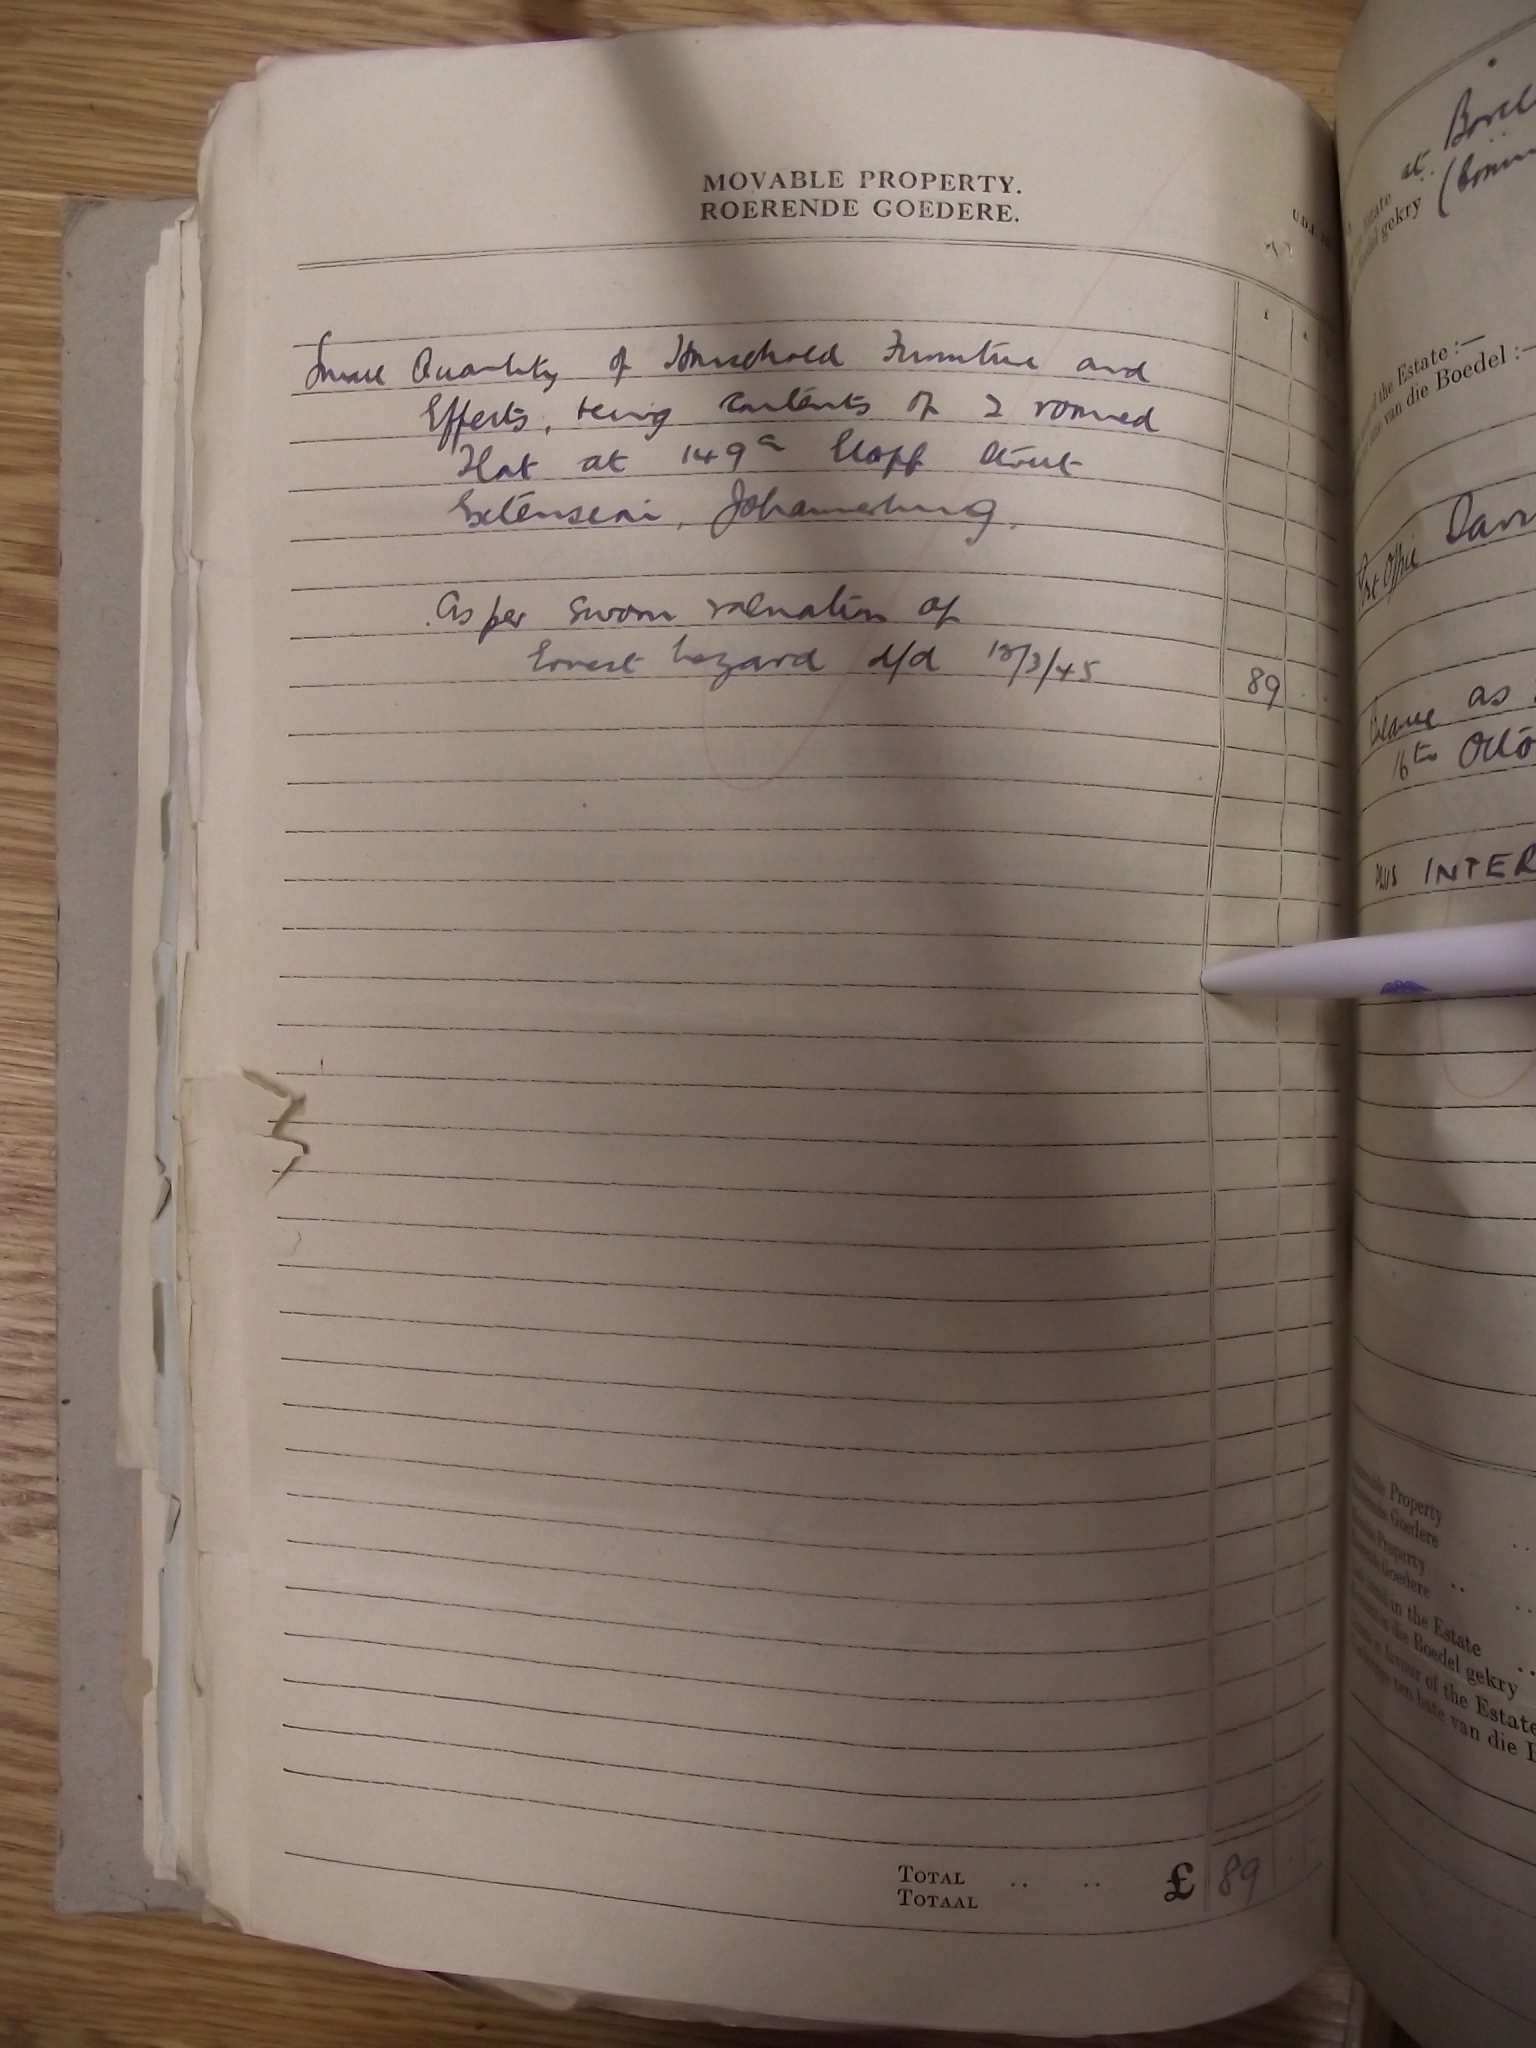 MOVABLE PROPERTY.
ROERENDE GOEDERE.
£
Small Quantity of Household Furniture and
Effects, being contents of 2 roomed
Flat at 149a Klopp Street
Extension, Johannesburg.
As per sworn valuation of
Ernest Lezard d/d 13/3/45
89
TOTAL .. .. £ 89
TOTAAL
at
Estate
Boedel gekry
the Estate :—
van die Boedel :—
Post Office
as
16th
plus INTER
Property
Goedere
Property
Goedere
in the Estate
die Boedel gekry
favour of the Estate
ten bate van die